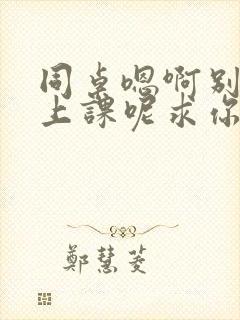 同桌嗯啊别
上課呢求你
鄭慧菱